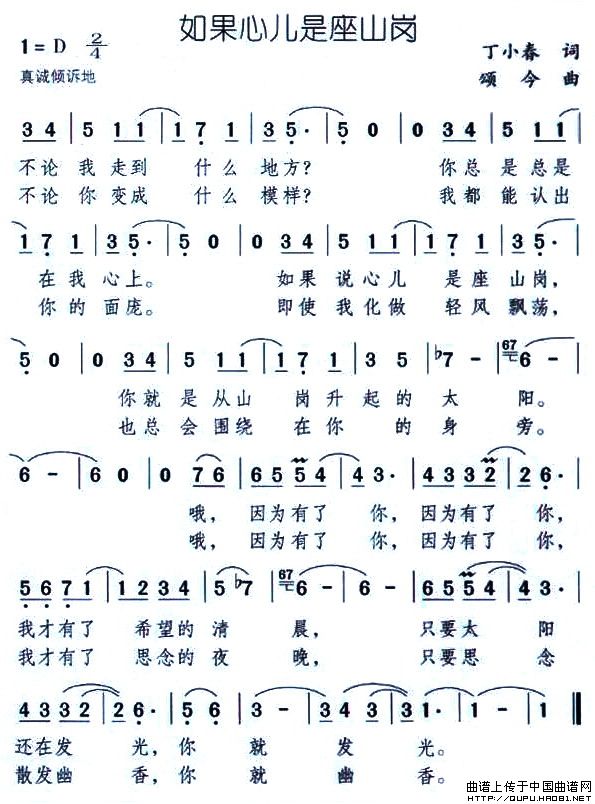 如果心儿是座山岗
1=D 2/4
丁小春 词
真诚倾诉地
颂今 曲
3 4 | 5 1 1 | 1 7 1 | 3 5· | 5 0 | 0 3 4 | 5 1 1 |
不论我走到 什么地方? 你总是总是
不论你变成 什么模样? 我都能认出
1 7 1 | 3 5· | 5 0 | 0 3 4 | 5 1 1 | 1 7 1 | 3 5· |
在我心上。 如果说心儿 是座山岗,
你的面庞。 即使我化做 轻风飘荡,
5 0 | 0 3 4 | 5 1 1 | 1 7 1 | 3 5 | ♭7 - | 67 6 - |
你就是从山 岗升起的太 阳。
也总会围绕 在你的身 旁。
6 - | 6 0 | 0 7 6 | 6 5 5 4 | 4 3· | 4 3 3 2 | 2 6· |
哦, 因为有了 你, 因为有了 你,
哦, 因为有了 你, 因为有了 你,
5 6 7 1 | 1 2 3 4 | 5 ♭7 | 67 6 - | 6 - | 6 5 5 4 | 4 3· |
我才有了 希望的清 晨, 只要太 阳
我才有了 思念的夜 晚, 只要思 念
4 3 3 2 | 2 6· | 5 6 | 3 - | 3 4 3 2 | 1 - | 1 - ‖
还在发 光, 你就发 光。
散发幽 香, 你就幽 香。
曲谱上传于中国曲谱网
HTTP://QUPU.HAO81.NET